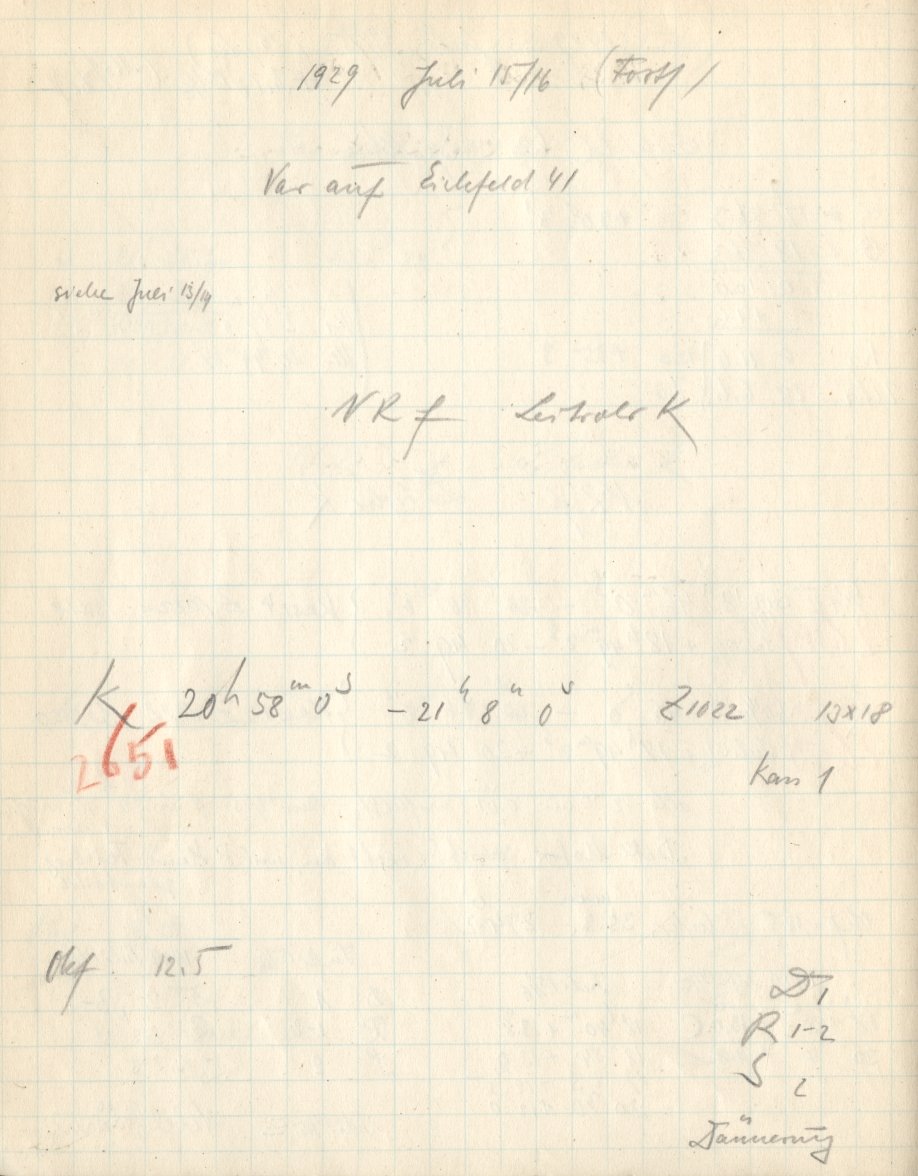 1929 Juli 15/16 (Forts)
Var auf Eichfeld 41
siehe Juli 13/14
NR f Leitrohr K
K 20h 58m 0s -21h 8m 0s Z1022 13x18
2651
Kass 1
Okf 12.5
D 1
R 1-2
S 2
Dämmerung